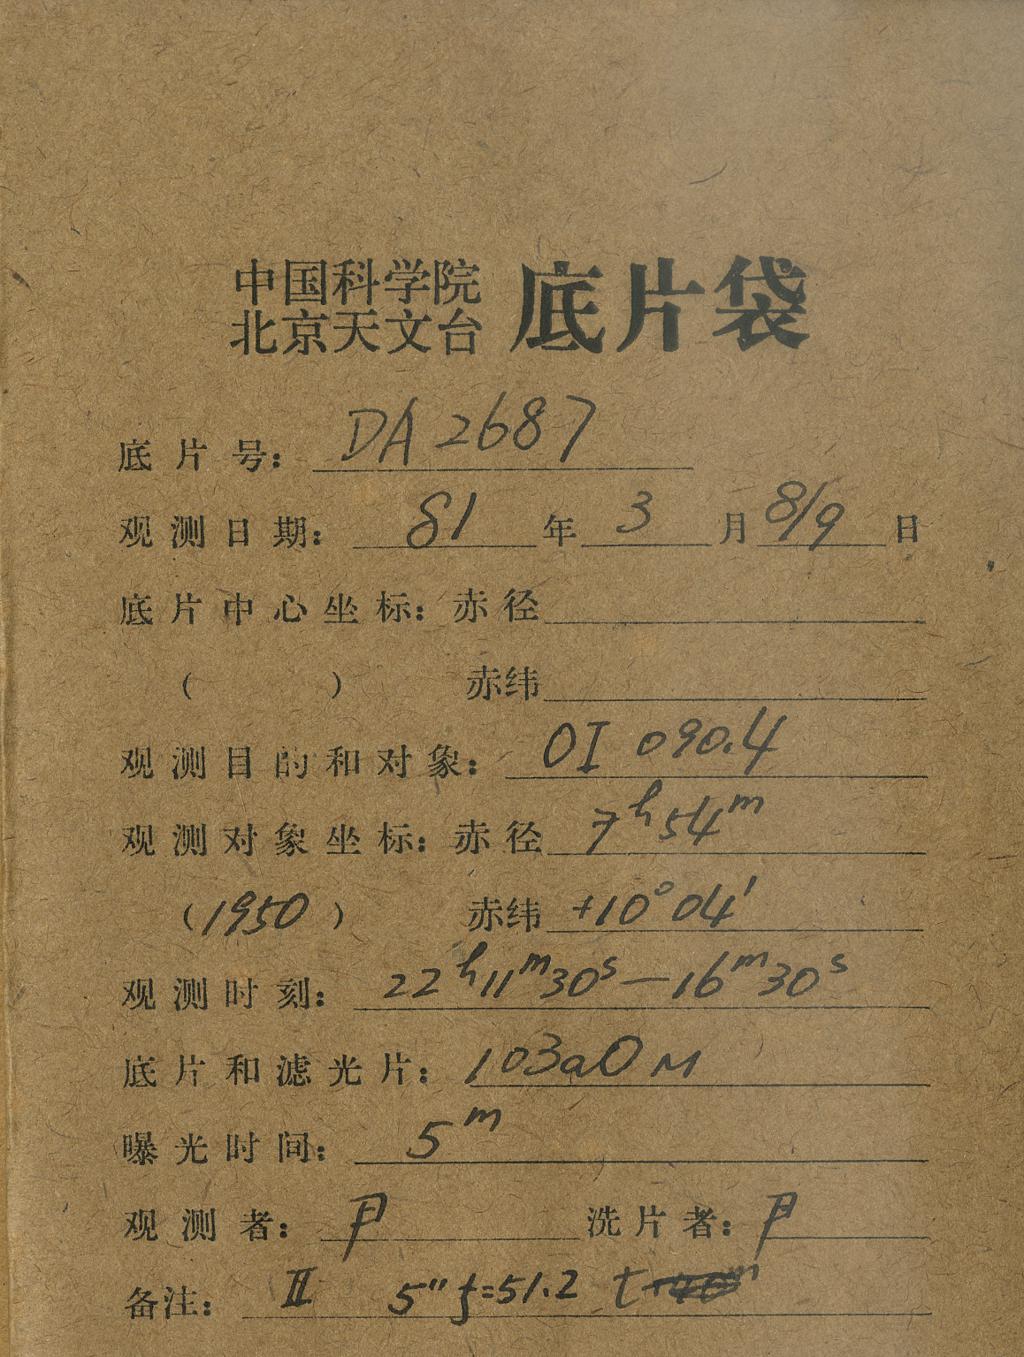 中国科学院
北京天文台
底片袋
底片号: DA 2687
观测日期: 81 年 3 月 8/9 日
底片中心坐标: 赤径
( ) 赤纬
观测目的和对象: OI 090.4
观测对象坐标: 赤径 7h 54m
(1950) 赤纬 +10° 04'
观测时刻: 22h 11m 30s — 16m 30s
底片和滤光片: 103aO M
曝光时间: 5m
观测者: 尹 洗片者: 尹
备注: II 5" f=51.2 t